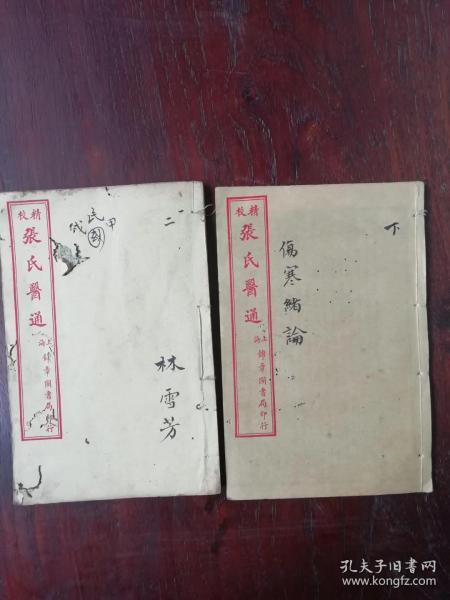 精校
張氏醫通
上海錦章圖書局印行
二
民國
甲
戌
林雪芳
精校
張氏醫通
上海錦章圖書局印行
下
傷寒緒論
孔夫子旧书网
www.kongfz.com